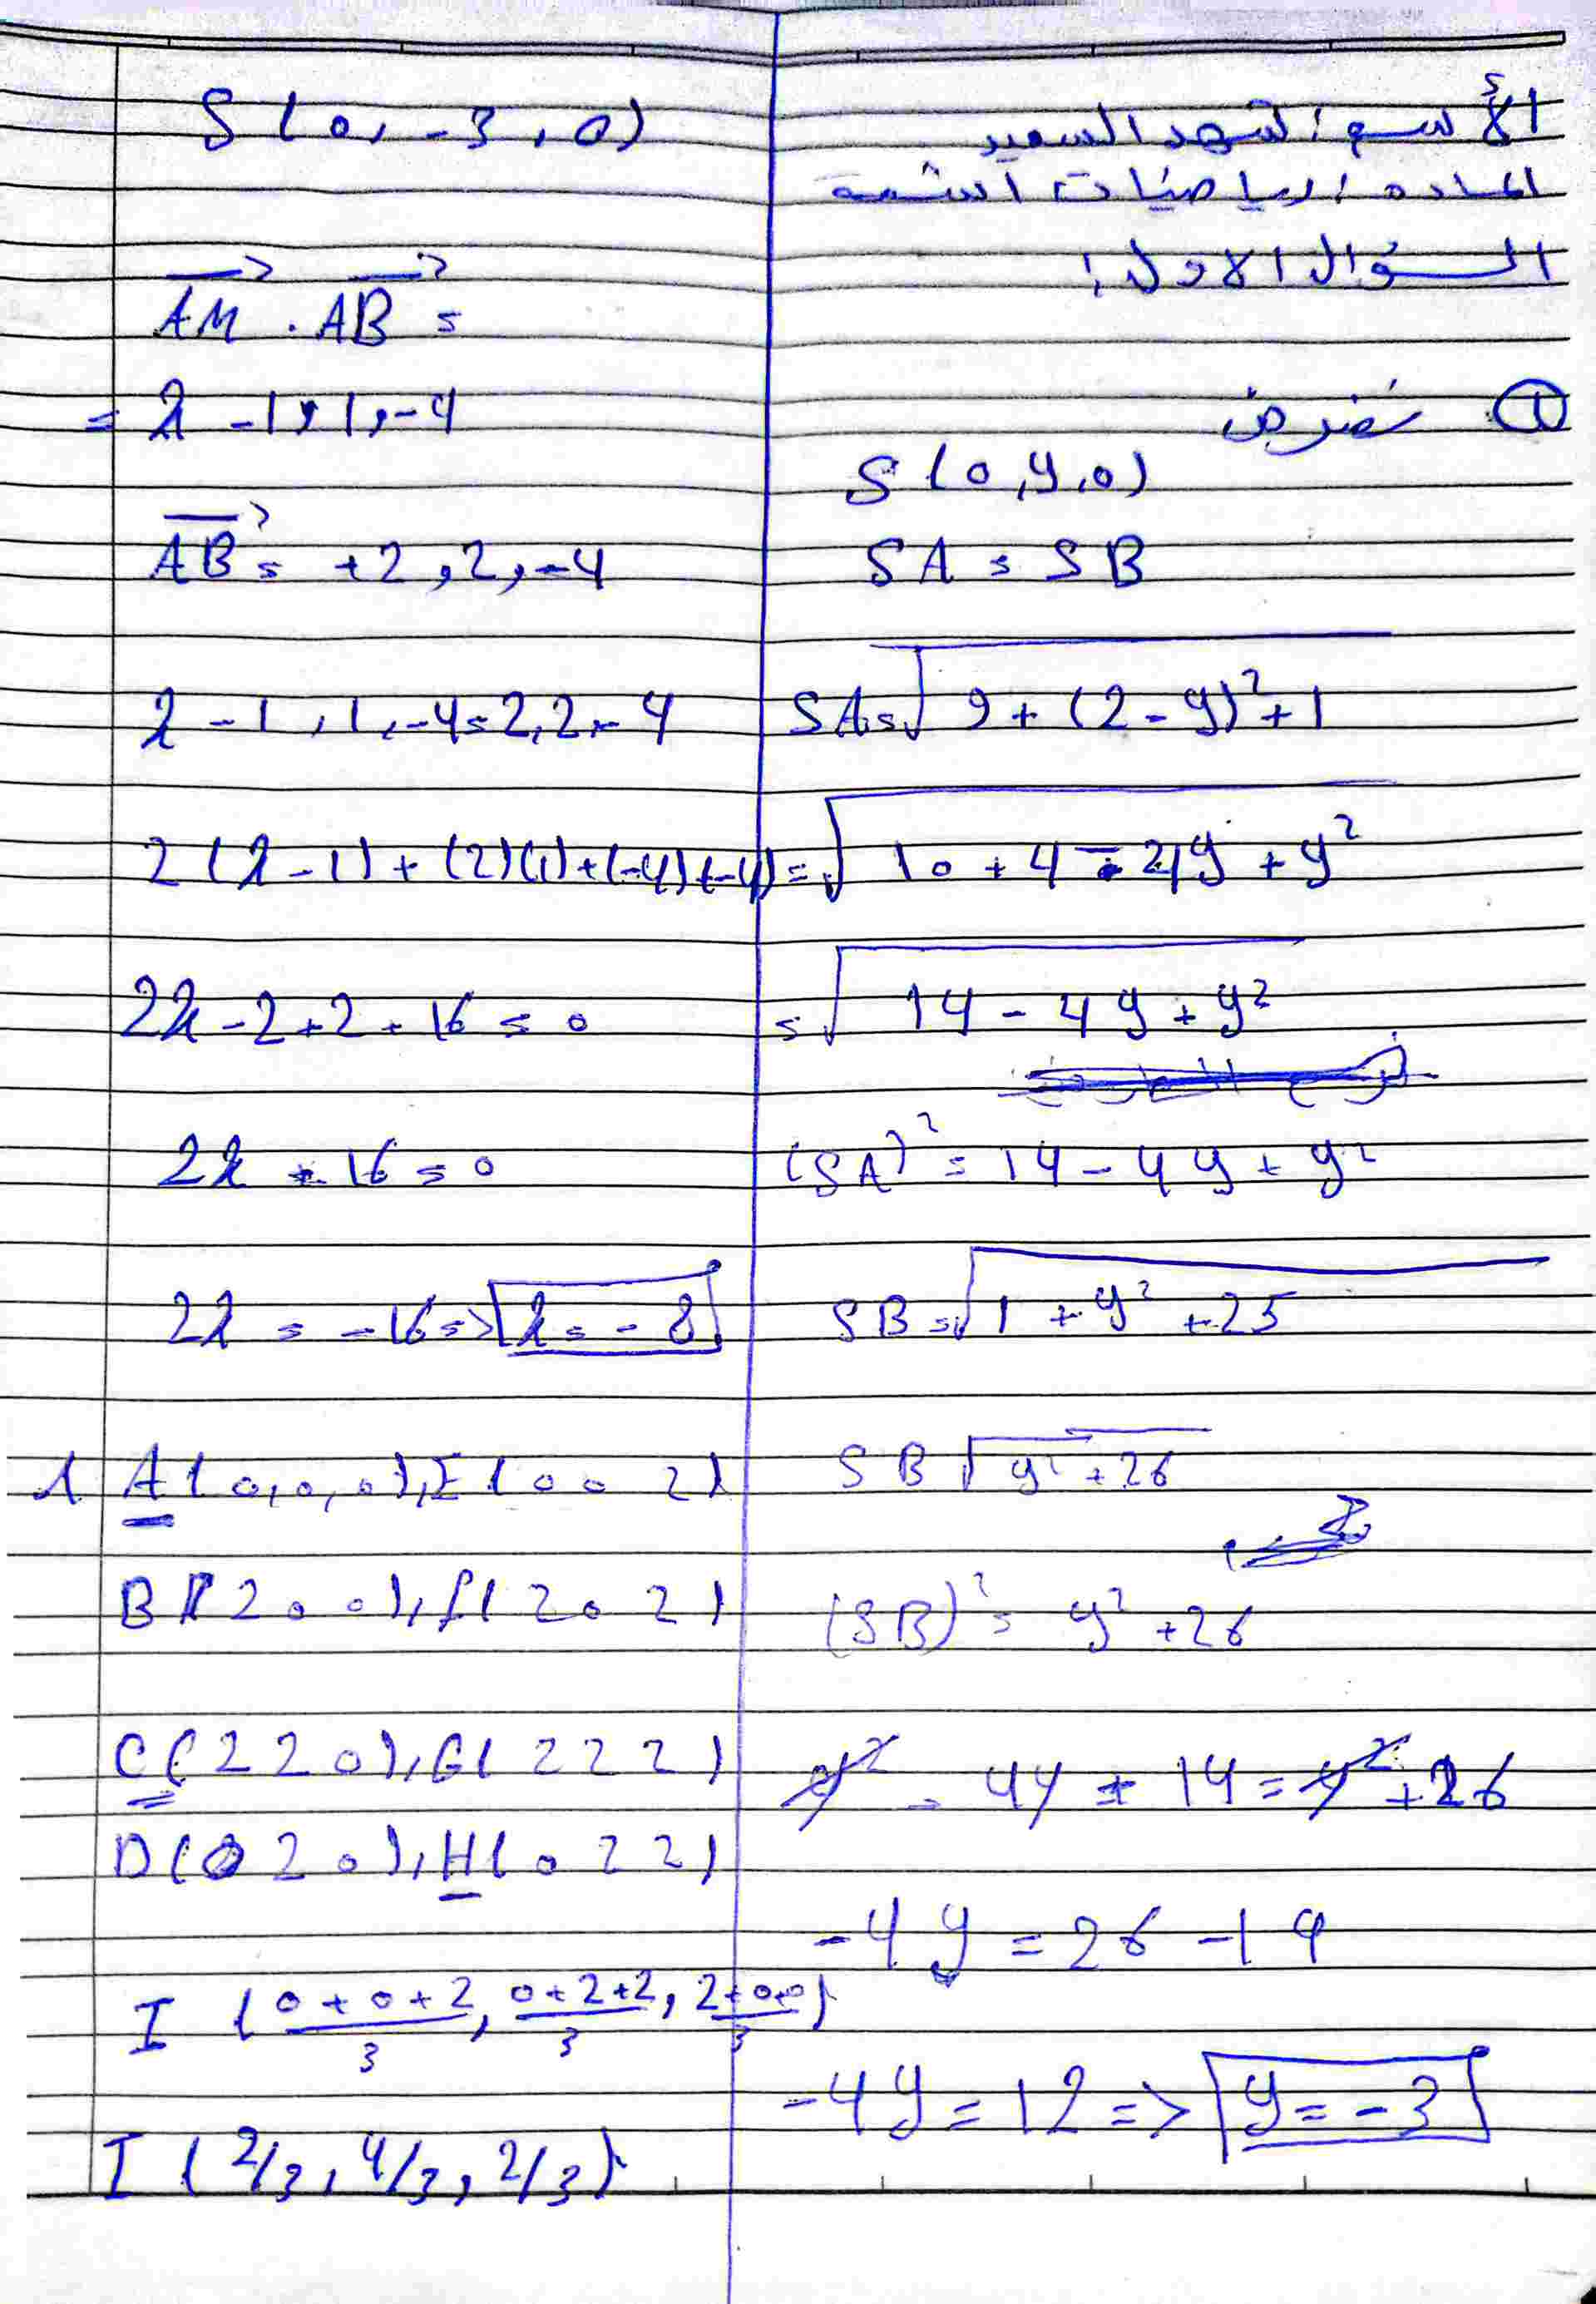 الأسم : شهد السعيد
الماده : رياضيات أشعة
السؤال الاول :
① نفرض
S (0, y, 0)
SA = SB
SA = √9 + (2 - y)² + 1
= √10 + 4 - 4y + y²
= √14 - 4y + y²
(SA)² = 14 - 4y + y²
SB = √1 + y² + 25
SB √y² + 26
(SB)² = y² + 26
y² - 4y + 14 = y² + 26
-4y = 26 - 14
-4y = 12 => y = -3
S (0, -3, 0)
AM . AB =
= λ - 1, 1, -4
AB = +2, 2, -4
λ - 1, 1, -4 = 2, 2, -4
2(λ - 1) + (2)(1) + (-4)(-4)
2λ - 2 + 2 + 16 = 0
2λ + 16 = 0
2λ = -16 => λ = -8
1 A(0,0,0), E(0 0 2)
B(2 0 0), F(2 0 2)
C(2 2 0), G(2 2 2)
D(0 2 0), H(0 2 2)
I (0+0+2/3, 0+2+2/3, 2+0+0/3)
I (2/3, 4/3, 2/3)